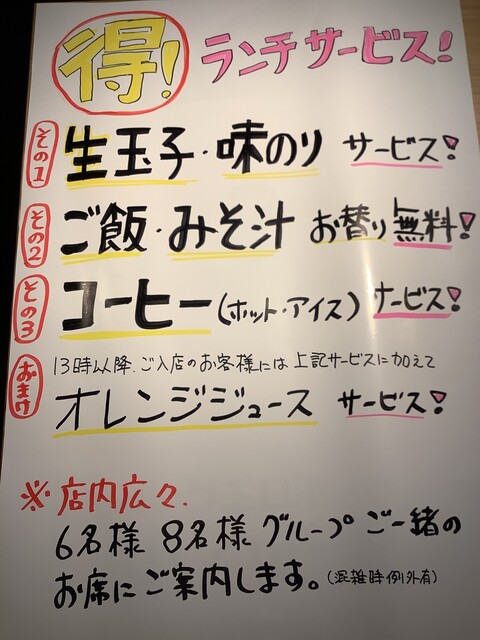 得! ランチサービス!
その1 生玉子・味のり サービス!
その2 ご飯・みそ汁 お替り無料!
その3 コーヒー(ホット・アイス) サービス!
おまけ 13時以降、ご入店のお客様には上記サービスに加えて
オレンジジュース サービス!
※店内広々、
6名様 8名様 グループご一緒の
お席にご案内します。(混雑時例外有)